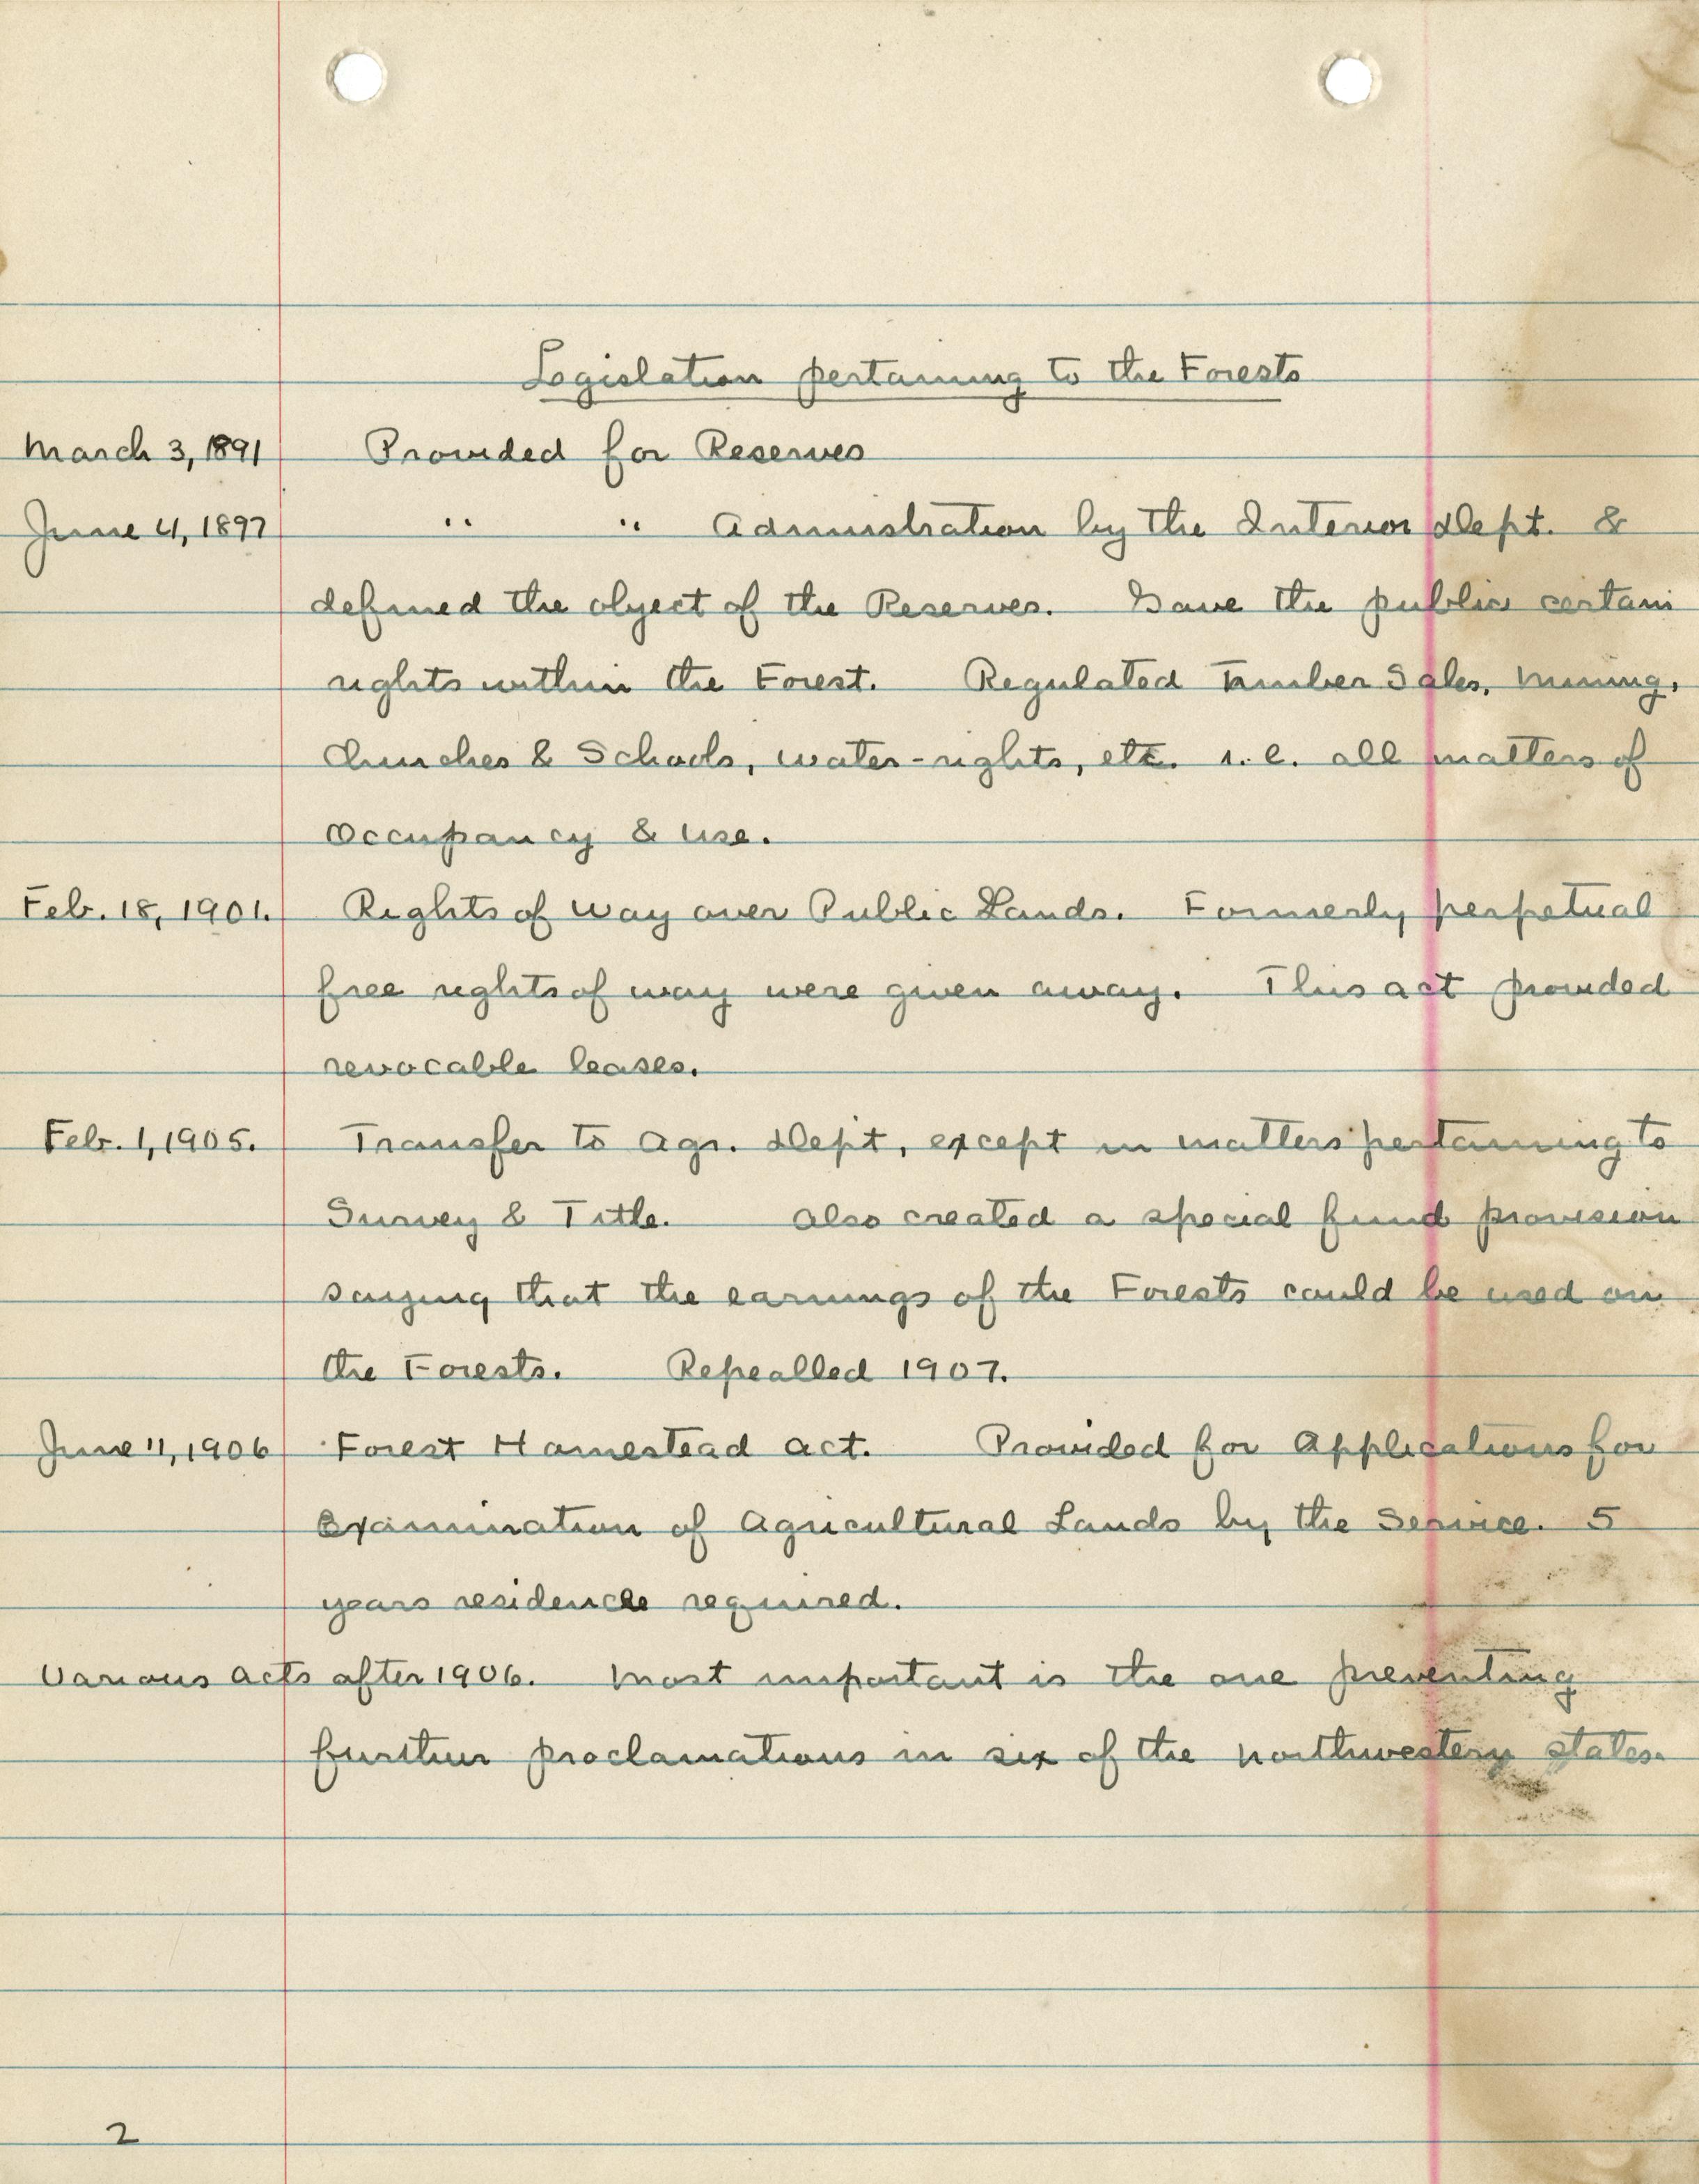 Legislation pertaining to the Forests
March 3, 1891 Provided for Reserves
June 4, 1897 " " Administration by the Interior Dept. &
defined the object of the Reserves. Gave the public certain
rights within the Forest. Regulated Timber Sales, Mining,
Churches & Schools, water-rights, etc. i.e. all matters of
Occupancy & use.
Feb. 18, 1901. Rights of way over Public Lands. Formerly perpetual
free rights of way were given away. This act provided
revocable leases.
Feb. 1, 1905. Transfer to Agr. Dept, except in matters pertaining to
Survey & Title. Also created a special fund provision
saying that the earnings of the Forests could be used on
the Forests. Repealled 1907.
June 11, 1906 Forest Homestead Act. Provided for Applications for
Examination of Agricultural Lands by the Service. 5
years residence required.
Various acts after 1906. Most important is the one preventing
further proclamations in six of the northwestern states.
2